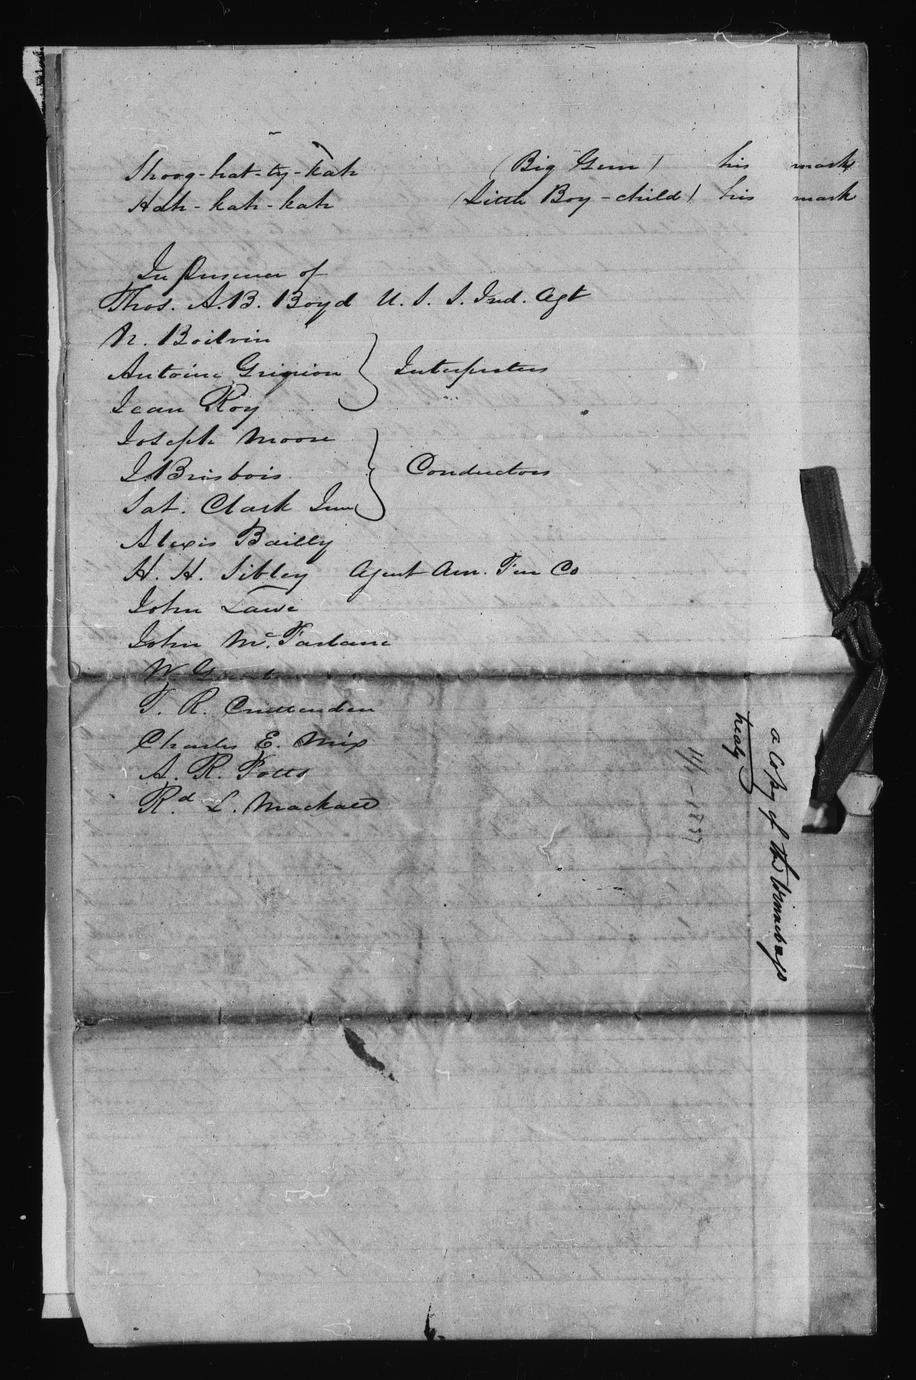 Shoog-hat-ty-kah (Big Gun) his mark
Hah-kah-kah (Little Boy-child) his mark
In presence of
Thos. A. B. Boyd U. S. S. Ind. Agt
N. Boilvin
Antoine Grignon } Interpreters
Jean Roy
Joseph Moore
I. Brisbois } Conductors
Sat. Clark Junr
Alexis Bailly
H. H. Sibley Agent Am. Fur Co
John Lawe
John McFarlane
W. Gunton
T. R. Cruttenden
Charles E. Mix
A. R. Potts
Rd L. Mackall
a Copy of the Winnebago
treaty
11/1-1837